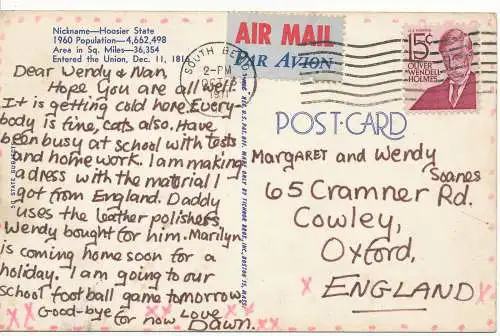 Nickname—Hoosier State
1960 Population—4,662,498
Area in Sq. Miles—36,354
Entered the Union, Dec. 11, 181
AIR MAIL
PAR AVION
SOUTH BEND
2-PM
OCT
1971
U.S. POSTAGE
15¢
OLIVER
WENDELL
HOLMES
Dear Wendy & Nan,
Hope you are all well.
It is getting cold here. Every-
body is fine, cats also. Have
been busy at school with tests
and home work. I am making
a dress with the material I
got from England. Daddy
uses the leather polishers
Wendy bought for him. Marilyn
is coming home soon for a
holiday. I am going to our
school football game tomorrow.
Good-bye for now Love
Dawn.
POST CARD
Margaret and Wendy
Soanes
65 Cramner Rd.
Cowley,
Oxford,
ENGLAND